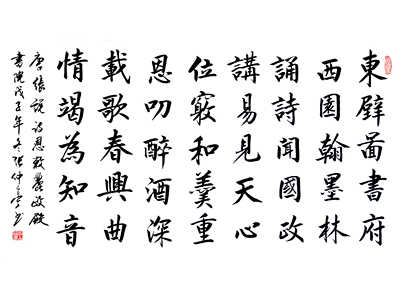 東壁啚書府
西園翰墨林
誦詩聞國政
講易見天心
位竊和羹重
恩叨醉酒深
載歌春興曲
情竭為知音
唐張說詩恩敕麗政殿
書院戊子年冬張仲亭書